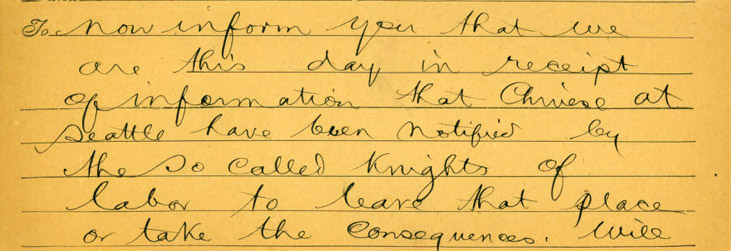 To now inform you that we
are this day in receipt
of information that Chinese at
Seattle have been notified by
the so called Knights of
labor to leave that place
or take the consequences. Will